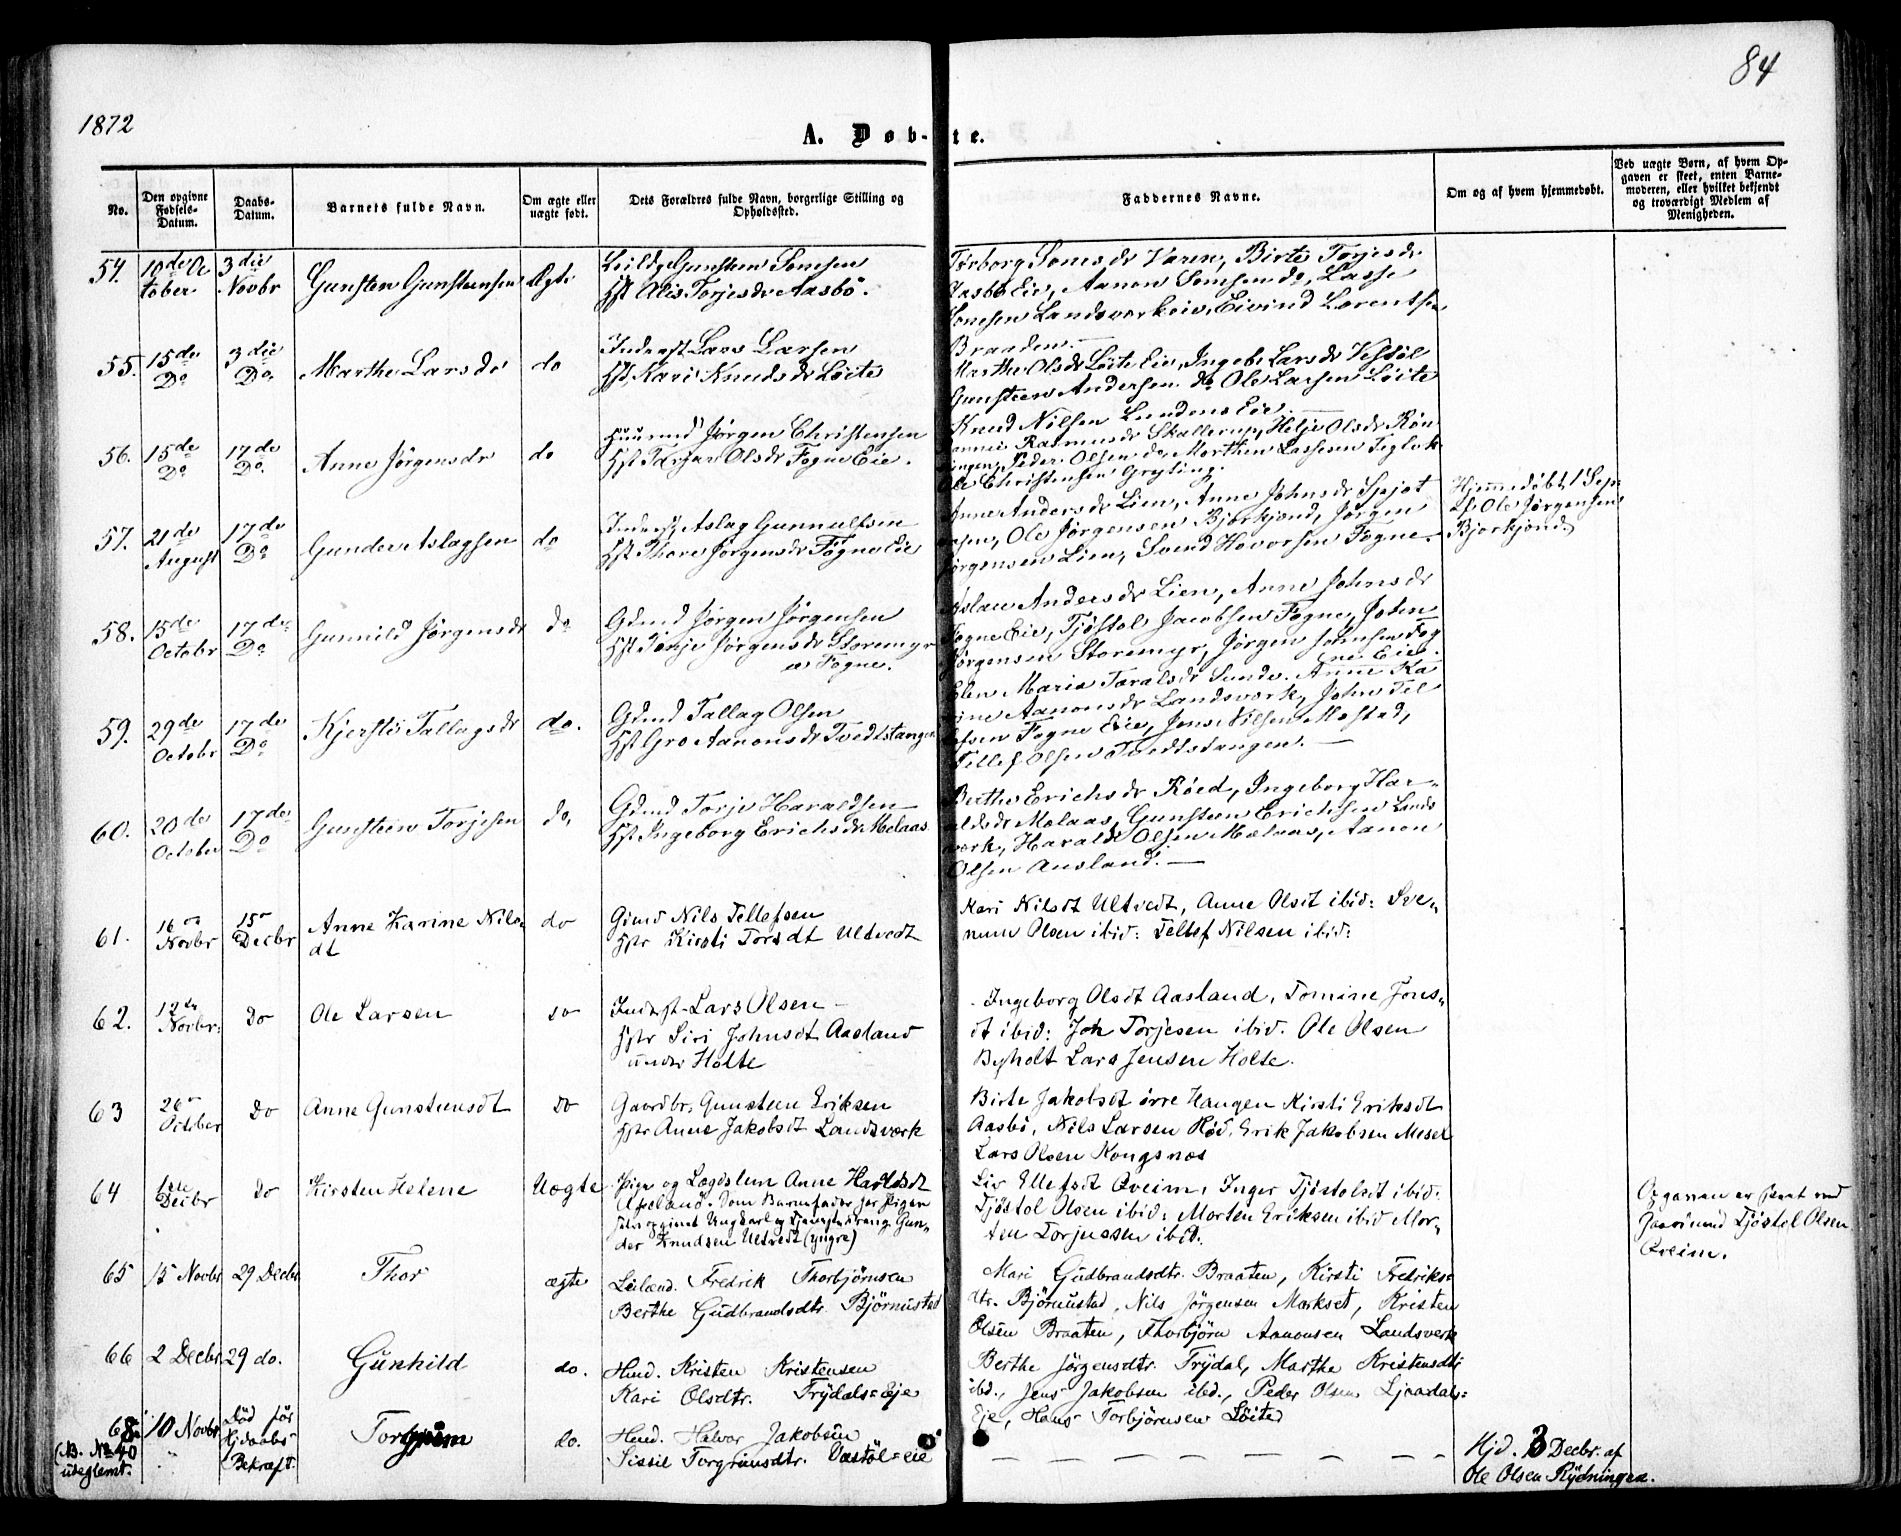 84
1872
A. Døb-te.
No.
Den opgivne Fødsels-Datum.
Daabs-Datum.
Barnets fulde Navn.
Om ægte eller uægte født.
Dets Forældres fulde Navn, borgerlige Stilling og Opholdssted.
Faddernes Navne.
Om og af hvem hjemmedøbt.
Ved uægte Børn, af hvem Opgaven er skeet, enten Barnemoderen, eller hvilket bekjendt og troværdigt Medlem af Menigheden.
54. 10de October 3die Novbr Gunsten Gunsteensen Ægte
Leild. Gunsten Sømsen
Hst Alis Torjesdr Aasbø.
Torborg Sømesdr Varen, Birte Torjesdr
Aasbø Eie, Aanon Sømsen do, Lasse
Sømsen Landsværkeie, Eivind Lorentsen
Braaden.
55. 15de Do 3die Do Marthe Larsdr do
Inderst Lars Larsen
Hst. Kari Knudsdr Løite
Marthe Olsdr Løite Eie, Ingebr Larsdr Vestøl
Gunsteen Andersen do Ole Larsen Løite
Knud Nilsen Lundens Eie.
56. 15de Do 17de Do. Anne Jørgensdr do
Huusmd Jørgen Christensen
Hst Taran Olsdr Fogne Eie.
Rasmusdr Skallerup, Helje Olsdr Røn
ningen, Peder Olsen do, Morthen Lassesen
Ole Christensen Gryting.
57. 21de August 17de Do Gunder Aslagsen do
Inderst Aslag Gunnulfsen
Hst Thore Jørgensdr Fogne Eie
Anne Andersdr Lien, Anne Johnsdr
Ole Jørgensen Bjørkjønd, Jørgen
Jørgensen Lien, Svend Hovorsen Fogne.
Hjemmedøbt 1 Sep
af Ole Jørgensen
Bjorkjønd.
58. 15de Octobr 17de Do Gunnild Jørgensdr do
Gdmd Jørgen Jørgensen
Hst Torje Jørgensdr Storemyr
av Fogne.
Aslau Andersdr Lien, Anne Johnsdr
Fogne Eie, Tjøstol Jacobsen Fogne, John
Jørgensen Storemyr, Jørgen Johnsen Fog
ne Eie.
59. 29de Octobr 17de Do Kjersti Tallagsdr do.
Gdmd Tallag Olsen
Hst Gro Aanonsdr Tvedtstangen
Elen Maria Taralsdr Sunde. Anne Ka
rine Aanonsdr Landsværk, John Tel
lefsen Fogne Eie, Jens Nilsen Mostad,
Tellef Olsen Tvedtstangen.
60. 20de October 17de Do Gunsteen Torjesen do,
Gdmd Torje Haraldsen
Hst Ingeborg Erichsdr Melaas
Berthe Erichsdr Røed, Ingeborg Har-
aldsdr Mælaas, Gunsten Erichsen Lands
værk, Harald Olsen Mælaas, Aanon
Olsen Ausland.
61. 16de Novbr 15de Decbr Anne Karine Nils-
dt do
Gdmd Nils Tellefsen
Hstr Kirsti Torsdt Ultvedt
Kari Nilsdt Ultvedt, Anne Olsdt ibid: Sve-
num Olsen ibid: Tellef Nilsen ibid:
62. 12te Novbr: Do Ole Larsen do
Inderst Lars Olsen
Hstr Siri Johnsdt Aasland
under Holte
Ingeborg Olsdt Aasland, Tomine Jons-
dt ibid: Joh Torjesen ibid. Ole Olsen
Byholt Lars Jensen Holte.
63 26de October Do Anne Gunsteensdt do
Gaardbr. Gunsteen Eriksen
Hstr Anne Jakobsdt Landsværk
Birte Jakobsdt øvre Haugen Kirsti Eriksdt
Aasbø, Nils Larsen Rød, Erik Jakobsen Mesel
Lars Olsen Kongsnæs
64 1ste Decbr Do Kirsten Helene Uægte
Pige og Lægdslem Anne Haraldsdt
Axeland. Som Barnefader har Pigen
Ungkarl og Gun-
der Knudsen Ultvedt (yngre)
Liv Ellefsdt Øveim, Inger Tjøstolsdt ibid:
Tjøstol Olsen ibid: Morten Eriksen ibid Mor-
ten Torjussen ibid.
Opgaven er skeet ved
Gaardmd Tjøstol Olsen
Øveim.
65 15 Novbr 29 Decbr Thor ægte
Leilænd. Fredrik Thorbjørnsen
Berthe Gudbrandsdtr. Bjørnustad
Mari Gudbrandsdtr. Braaten, Kirsti Fredriks-
dtr. Bjørnustad, Nils Jørgensen Markset, Kristen
Olsen Braaten, Thorbjørn Aanonsen Landsværk
66 2 Decbr. 29 do. Gunhild do.
Husd. Kristen Kristensen
Kari Olsdtr. Frydals-Eje
Berthe Jørgensdtr. Frydal, Marthe Kristensdtr
ibd., Jens Jakobsen ibd., Peder Olsen Ljaadals-
Eje, Hans Torbjørnsen Løite
68. 10 Novbr Død før Hjdaabs Bekræft. Torgrim do.
(B. No 40
uteglemt.
Husd. Halvor Jakobsen
Sissil Torgrimsdtr. Væstøl-eie
Hjd. 3 Decbr. af
Ole Olsen Rydningen.